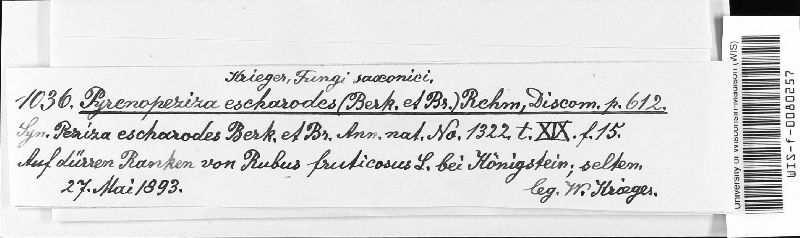 Krieger, Fungi saxonici.
1036. Pyrenopeziza escharodes (Berk. et Br.) Rehm, Discom. p. 612.
Syn. Peziza escharodes Berk. et Br. Ann. nat. No. 1322. t. XIX. f. 15.
Auf dürren Ranken von Rubus fruticosus L. bei Königstein, selten.
27. Mai 1893.
leg. W. Krieger.
University of Wisconsin-Madison (WIS)
WIS-f-0080257